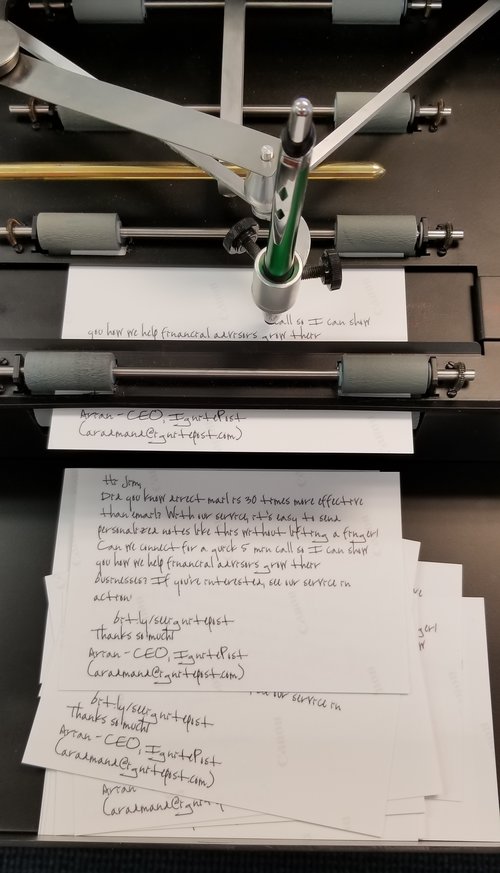 call so I can show
you how we help financial advisors grow their
Arian - CEO, IgnitePost
(aradmand@ignitepost.com)
Hi Jim,
Did you know direct mail is 30 times more effective
than email? With our service, it's easy to send
personalized notes like this without lifting a finger!
Can we connect for a quick 5 min call so I can show
you how we help financial advisors grow their
businesses? If you're interested, see our service in
action!
bit.ly/seeignitepost
Thanks so much!
Arian - CEO, IgnitePost
(aradmand@ignitepost.com)
our service in
bit.ly/seeignitepost
Thanks so much!
Arian - CEO, IgnitePost
(aradmand@ignitepost.com)
Arian
(aradmand@igni
Canon
Canon